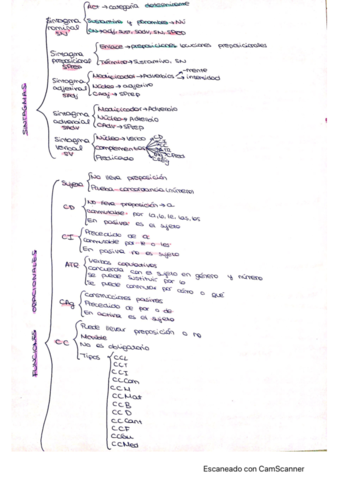 Act → categoría determinante
Sintagma nominal SN
Sustantivo y pronombre → NN
Sintagma preposicional SPREP
Enlace → preposiciones locuciones preposicionales
Término → Sustantivo, SN
Sintagma adjetival SAdj
Modificador → Adverbios
-mente
intensidad
Núcleo → adjetivo
CAdj → SPREP
Sintagma adverbial SAdv
Modificador → Adverbio
Núcleo → Adverbio
CAdv → SPREP
Sintagma verbal SV
Núcleo → Verbo
complementos
Predicado
SINTAGMAS
Sujeto
No lleva preposición
Prueba concordancia número
CD
No lleva preposición → a
conmutable por lo, la, le, las, los
En pasiva es el sujeto
CI
Precedido de a
conmutable por le o les
En pasiva no es sujeto
ATR
Verbos copulativos
Concuerda con el sujeto en género y número
Se puede sustituir por lo
Se puede conmutar por cómo o qué
CAg
Construcciones pasivas
Precedido de por o de
En activa es el sujeto
FUNCIONES ORACIONALES
CC
Puede llevar preposición o no
Movible
No es obligatorio
Tipos
CCL
CCT
CCI
CCCom
CCM
CCMat
CCB
CCD
CCCam
CCF
CCMed
Escaneado con CamScanner